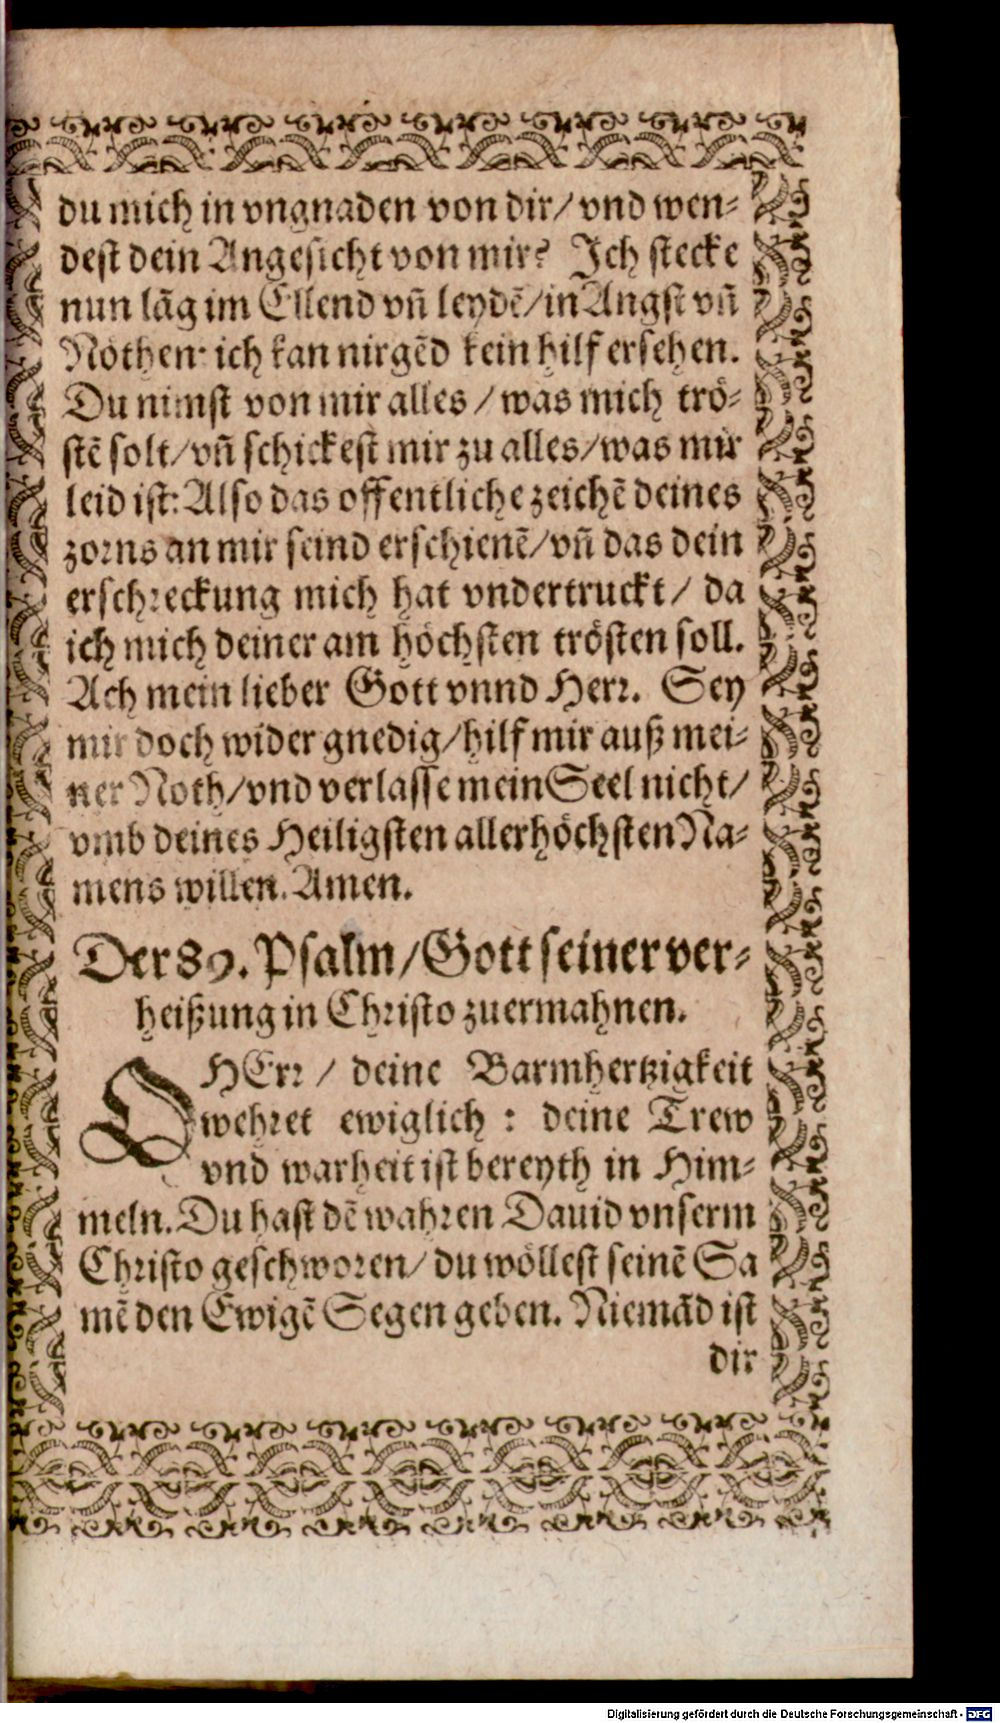 du mich in vngnaden von dir/ vnd wen⸗
dest dein Angesicht von mir? Ich stecke
nun lãg im Ellend vñ leydẽ/in Angst vñ
Nöthen: ich kan nirgẽd kein hilf ersehen.
Du nimst von mir alles / was mich trö⸗
stẽ solt/vñ schickest mir zu alles/was mir
leid ist: Also das offentliche zeichẽ deines
zorns an mir seind erschienẽ/vñ das dein
erschreckung mich hat vndertruckt / da
ich mich deiner am höchsten trösten soll.
Ach mein lieber Gott vnnd Herr. Sey
mir doch wider gnedig/hilf mir auß mei⸗
ner Noth/vnd verlasse mein Seel nicht/
vmb deines Heiligsten allerhöchsten Na⸗
mens willen. Amen.
Der 89. Psalm/Gott seiner ver⸗
heißung in Christo zuermahnen.
O HErr / deine Barmhertzigkeit
wehret ewiglich : deine Trew
vnd warheit ist bereyth in Him⸗
meln. Du hast dẽ wahren Dauid vnserm
Christo geschworen/ du wöllest seinẽ Sa
mẽ den Ewigẽ Segen geben. Niemãd ist
dir
Digitalisierung gefördert durch die Deutsche Forschungsgemeinschaft - DFG